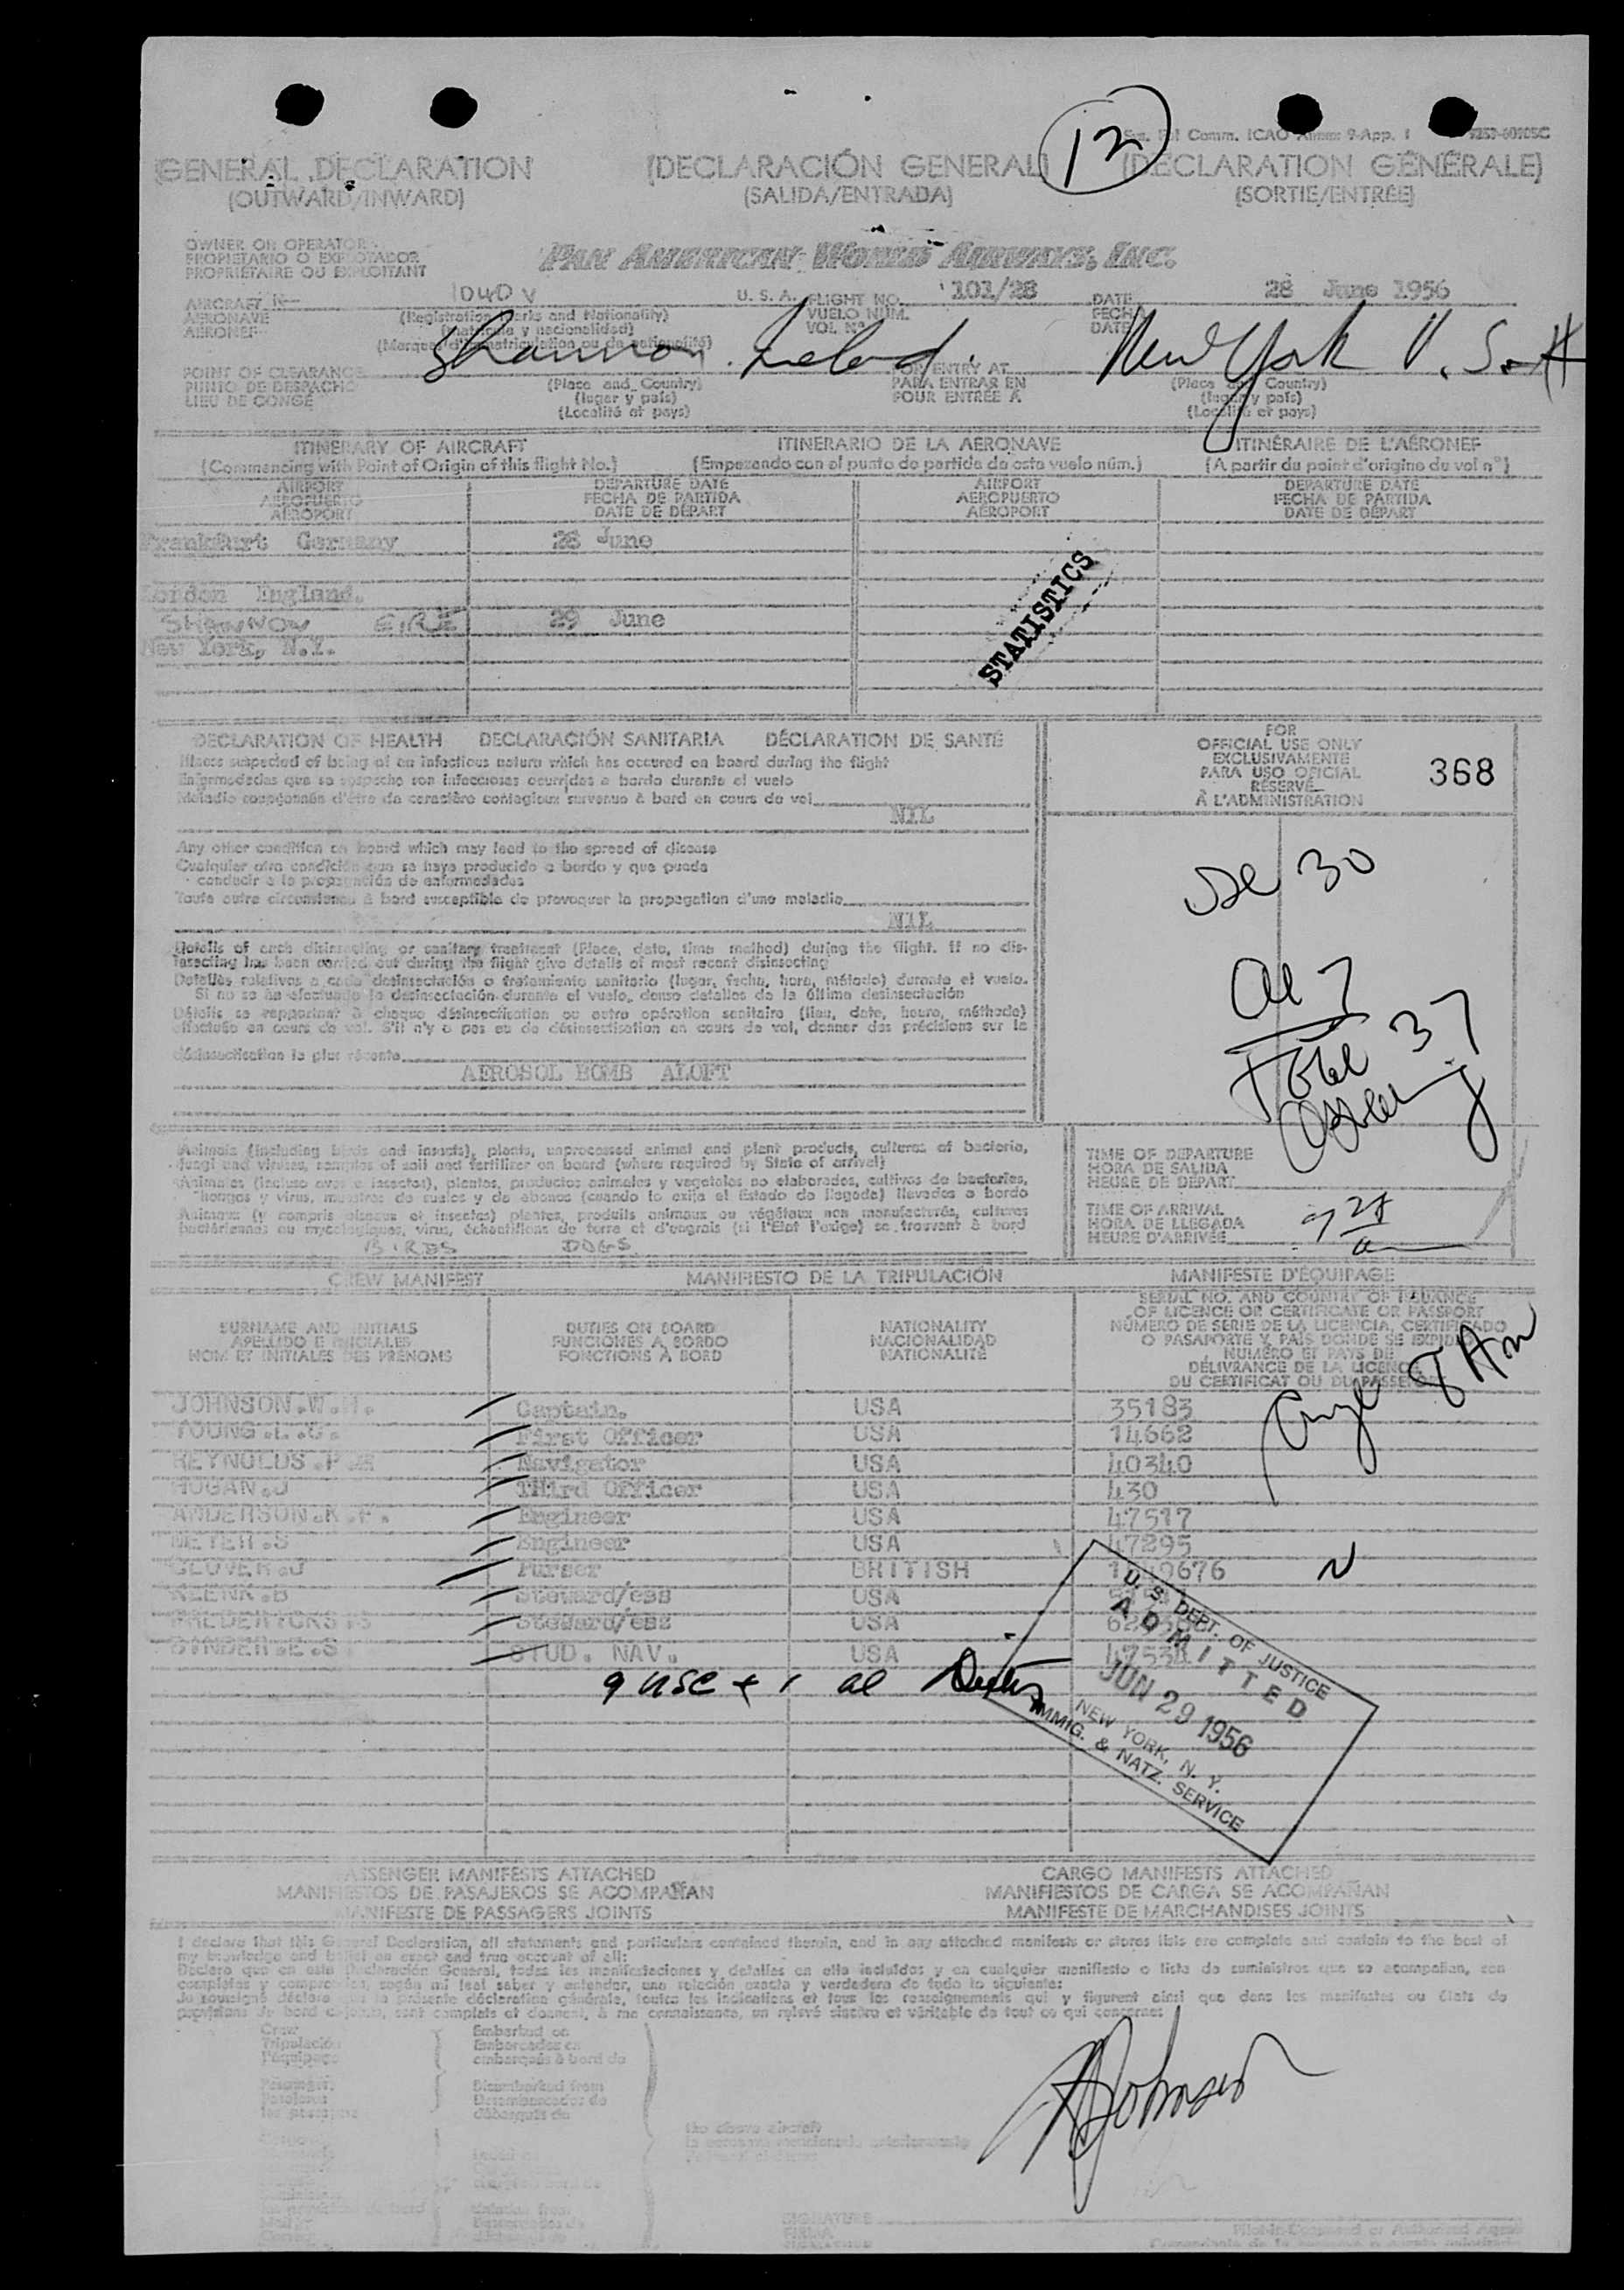 12
Comm. ICAO Annex 9-App. 1
(GENERAL DECLARATION (DECLARACIÓN GENERAL) (DECLARATION GÉNÉRALE)
(OUTWARD/INWARD) (SALIDA/ENTRADA) (SORTIE/ENTRÉE)
OWNER OR OPERATOR
PROPIETARIO O EXPLOTADOR
PROPRIÉTAIRE OU EXPLOITANT
PAN AMERICAN WORLD AIRWAYS, INC.
AIRCRAFT N— 1040 V U. S. A. FLIGHT NO. 101/28 DATE 28 June 1956
AERONAVE (Registration Marks and Nationality) VUELO NUM. FECHA
AERONEF (matrícula y nacionalidad) VOL Nº DATE
(Marques d'immatriculation ou de nationalité)
POINT OF CLEARANCE Shannon Ireland. FOR ENTRY AT New York U.S.A
PUNTO DE DESPACHO (Place and Country) PARA ENTRAR EN (Place and Country)
LIEU DE CONGÉ (lugar y país) POUR ENTRÉE A (lugar y país)
(Localité et pays) (Localité et pays)
ITINERARY OF AIRCRAFT ITINERARIO DE LA AERONAVE ITINÉRAIRE DE L'AÉRONEF
(Commencing with Point of Origin of this flight No.) (Empezando con el punto de partida de este vuelo núm.) (A partir du point d'origine du vol nº)
AIRPORT DEPARTURE DATE AIRPORT DEPARTURE DATE
AEROPUERTO FECHA DE PARTIDA AEROPUERTO FECHA DE PARTIDA
AÉROPORT DATE DE DÉPART AÉROPORT DATE DE DÉPART
Frankfurt Germany 28 June
London England.
SHANNON EIRE 29 June
New York, N.Y.
STATISTICS
DECLARATION OF HEALTH DECLARACIÓN SANITARIA DÉCLARATION DE SANTÉ
Illness suspected of being of an infectious nature which has occured on board during the flight
Enfermedades que se sospecha son infecciosas ocurridas a bordo durante el vuelo
Maladie soupçonnée d'être de caractère contagieux survenue à bord en cours de vol
NIL
Any other condition on board which may lead to the spread of disease
Cualquier otra condición que se haya producido a bordo y que pueda
conducir a la propagación de enfermedades
Toute autre circonstance à bord susceptible de provoquer la propagation d'une maladie
NIL
Details of each disinsecting or sanitary treatment (Place, date, time method) during the flight. If no dis-
insecting has been carried out during the flight give details of most recent disinsecting
Detalles relativos a cada desinsectación o tratamiento sanitario (lugar, fecha, hora, método) durante el vuelo.
Si no se ha efectuado la desinsectación durante el vuelo, dense detalles de la última desinsectación
Détails se rapportant à chaque désinsectisation ou autre opération sanitaire (lieu, date, heure, méthode)
effectuée en cours de vol. S'il n'y a pas eu de désinsectisation en cours de vol, donner des précisions sur la
désinsectisation la plus récente
AEROSOL BOMB ALOFT
FOR
OFFICIAL USE ONLY
EXCLUSIVAMENTE
PARA USO OFICIAL
RÉSERVÉ
À L'ADMINISTRATION
368
usc 30
al 7
Total 37
Animals (including birds and insects), plants, unprocessed animal and plant products, cultures of bacteria,
fungi and viruses, samples of soil and fertilizer on board (where required by State of arrival)
Animales (incluso aves e insectos), plantas, productos animales y vegetales no elaborados, cultivos de bacterias,
hongos y virus, muestras de suelos y de abonos (cuando lo exija el Estado de llegada) llevados a bordo
Animaux (y compris oiseaux et insectes) plantes, produits animaux ou végétaux non manufacturés, cultures
bactériennes ou mycologiques, virus, échantillons de terre et d'engrais (si l'Etat l'exige) se trouvant à bord
BIRDS DOGS
TIME OF DEPARTURE
HORA DE SALIDA
HEURE DE DÉPART
TIME OF ARRIVAL
HORA DE LLEGADA
HEURE D'ARRIVÉE
CREW MANIFEST MANIFIESTO DE LA TRIPULACIÓN MANIFESTE D'ÉQUIPAGE
SURNAME AND INITIALS
APELLIDO E INICIALES
NOM ET INITIALES DES PRÉNOMS
DUTIES ON BOARD
FUNCIONES A BORDO
FONCTIONS À BORD
NATIONALITY
NACIONALIDAD
NATIONALITÉ
SERIAL NO. AND COUNTRY OF ISSUANCE
OF LICENCE OR CERTIFICATE OR PASSPORT
NÚMERO DE SERIE DE LA LICENCIA, CERTIFICADO
O PASAPORTE Y PAÍS DONDE SE EXPIDIÓ
NUMÉRO ET PAYS DE
DÉLIVRANCE DE LA LICENCE
DU CERTIFICAT OU DU PASSEPORT
8 Am
JOHNSON.W.H. Captain. USA 35183
YOUNG.L.G. First Officer USA 14662
REYNOLDS.P Navigator USA 40340
HOGAN.J THird Officer USA 430
ANDERSON.K.F. Engineer USA 47517
MEYER.S Engineer USA 47295
GLOVER.J Purser BRITISH N
KLENK.B Steward/ess USA
FREDERICKS.S Steward/ess USA
BINDER.E.S STUD. NAV. USA 47534
9 usc + 1 al
U. S. DEPT. OF JUSTICE
ADMITTED
JUN 29 1956
NEW YORK, N. Y.
IMMIG. & NATZ. SERVICE
PASSENGER MANIFESTS ATTACHED CARGO MANIFESTS ATTACHED
MANIFIESTOS DE PASAJEROS SE ACOMPAÑAN MANIFIESTOS DE CARGA SE ACOMPAÑAN
MANIFESTE DE PASSAGERS JOINTS MANIFESTE DE MARCHANDISES JOINTS
I declare that this General Declaration, all statements and particulars contained therein, and in any attached manifests or stores lists are complete and contain to the best of
my knowledge and belief an exact and true account of all:
Declaro que en esta Declaración General, todas las manifestaciones y detalles en ella incluídos y en cualquier manifiesto o lista de suministros que se acompañan, son
completas y comprenden, según mi leal saber y entender, una relación exacta y verdadera de todo lo siguiente:
Je soussigné déclare que la présente déclaration générale, toutes les indications et tous les renseignements qui y figurent ainsi que dans les manifestes ou états de
provisions de bord ci-joints, sont complets et donnent, à ma connaissance, un relevé sincère et véritable de tout ce qui concerne:
Crew Embarked on
Tripulación Embarcados en
l'équipage embarqués à bord de
Passengers Disembarked from
Pasajeros Desembarcados de
les passagers débarqués de
the above aircraft
la aeronave mencionada anteriormente
Johnson
SIGNATURE
FIRMA
Pilot-in-Command or Authorized Agent